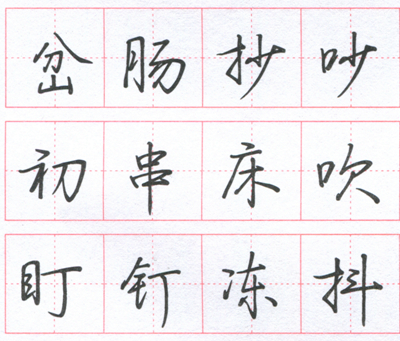 岔肠抄吵
初串床吹
盯钉冻抖